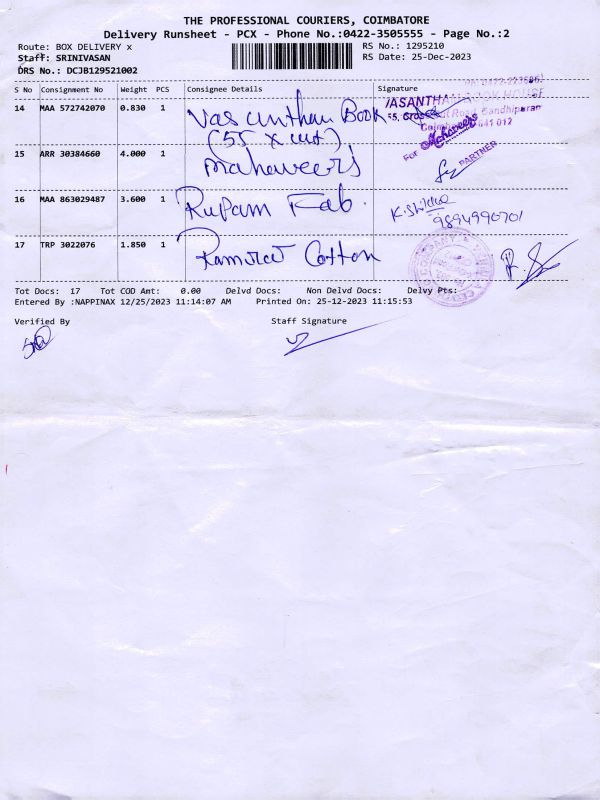 THE PROFESSIONAL COURIERS, COIMBATORE
Delivery Runsheet - PCX - Phone No.:0422-3505555 - Page No.:2
Route: BOX DELIVERY x RS No.: 1295210
Staff: SRINIVASAN RS Date: 25-Dec-2023
DRS No.: DCJB129521002
S No Consignment No Weight PCS Consignee Details Signature
14 MAA 572742070 0.830 1 Vasantham Book
VASANTHAM BOOK HOUSE
55, Cross Cut Road, Gandhipuram
Coimbatore 641 012
(55 x cut)
15 ARR 30384660 4.000 1 Mahaveer's
For Mahaveer's
PARTNER
16 MAA 863029487 3.600 1 Rupam Fab.
9894990701
17 TRP 3022076 1.850 1 Ramraj Cotton
Tot Docs: 17 Tot COD Amt: 0.00 Delvd Docs: Non Delvd Docs: Delvy Pts:
Entered By :NAPPINAX 12/25/2023 11:14:07 AM Printed On: 25-12-2023 11:15:53
Verified By Staff Signature